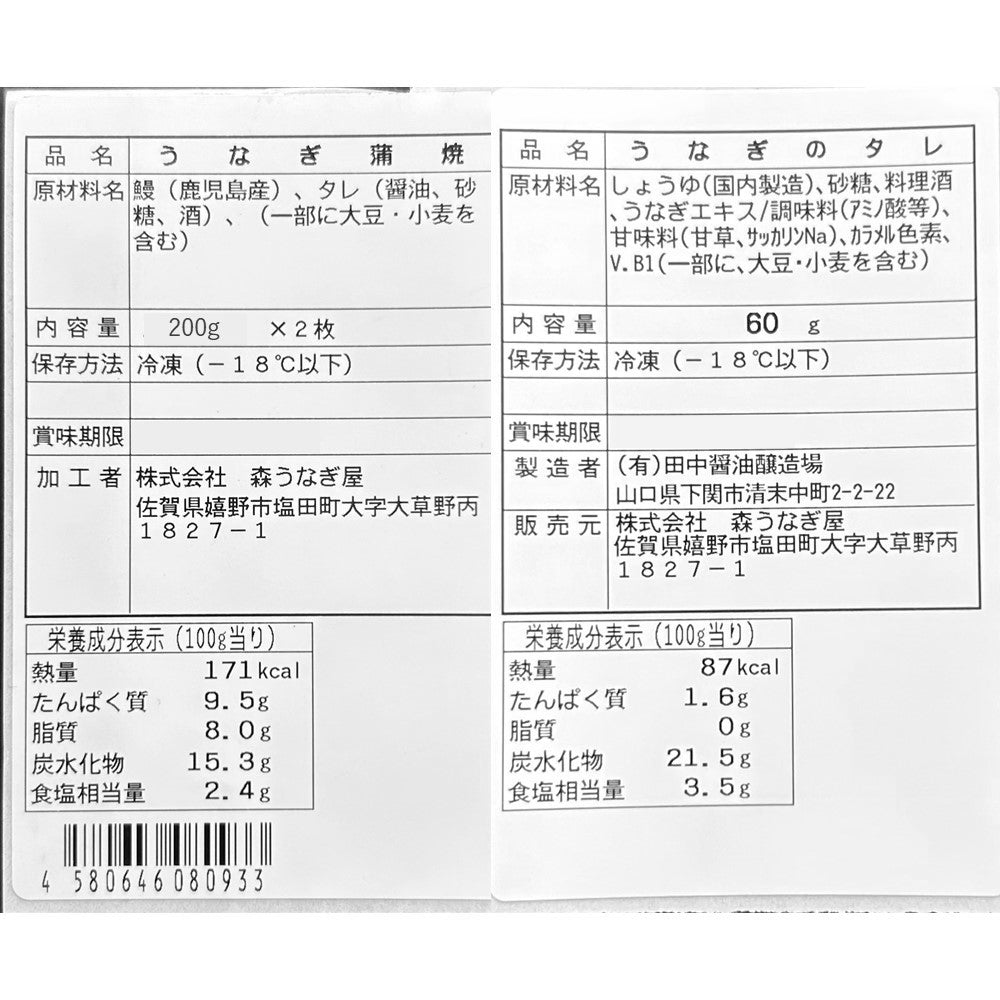 品名 うなぎ蒲焼
原材料名 鰻（鹿児島産）、タレ（醤油、砂
糖、酒）、（一部に大豆・小麦を
含む）
内容量 200g ×２枚
保存方法 冷凍（－１８℃以下）
賞味期限
加工者 株式会社 森うなぎ屋
佐賀県嬉野市塩田町大字大草野丙
１８２７－１
栄養成分表示（100g当り）
熱量 171kcal
たんぱく質 9.5g
脂質 8.0g
炭水化物 15.3g
食塩相当量 2.4g
4 580646 080933
品名 うなぎのタレ
原材料名 しょうゆ(国内製造)、砂糖、料理酒
、うなぎエキス/調味料(ｱﾐﾉ酸等)、
甘味料(甘草、ｻｯｶﾘﾝNa)、ｶﾗﾒﾙ色素、
V.B1(一部に、大豆・小麦を含む)
内容量 60 g
保存方法 冷凍（－１８℃以下）
賞味期限
製造者 (有)田中醤油醸造場
山口県下関市清末中町2-2-22
販売元 株式会社 森うなぎ屋
佐賀県嬉野市塩田町大字大草野丙
１８２７－１
栄養成分表示（100g当り）
熱量 87kcal
たんぱく質 1.6g
脂質 0g
炭水化物 21.5g
食塩相当量 3.5g